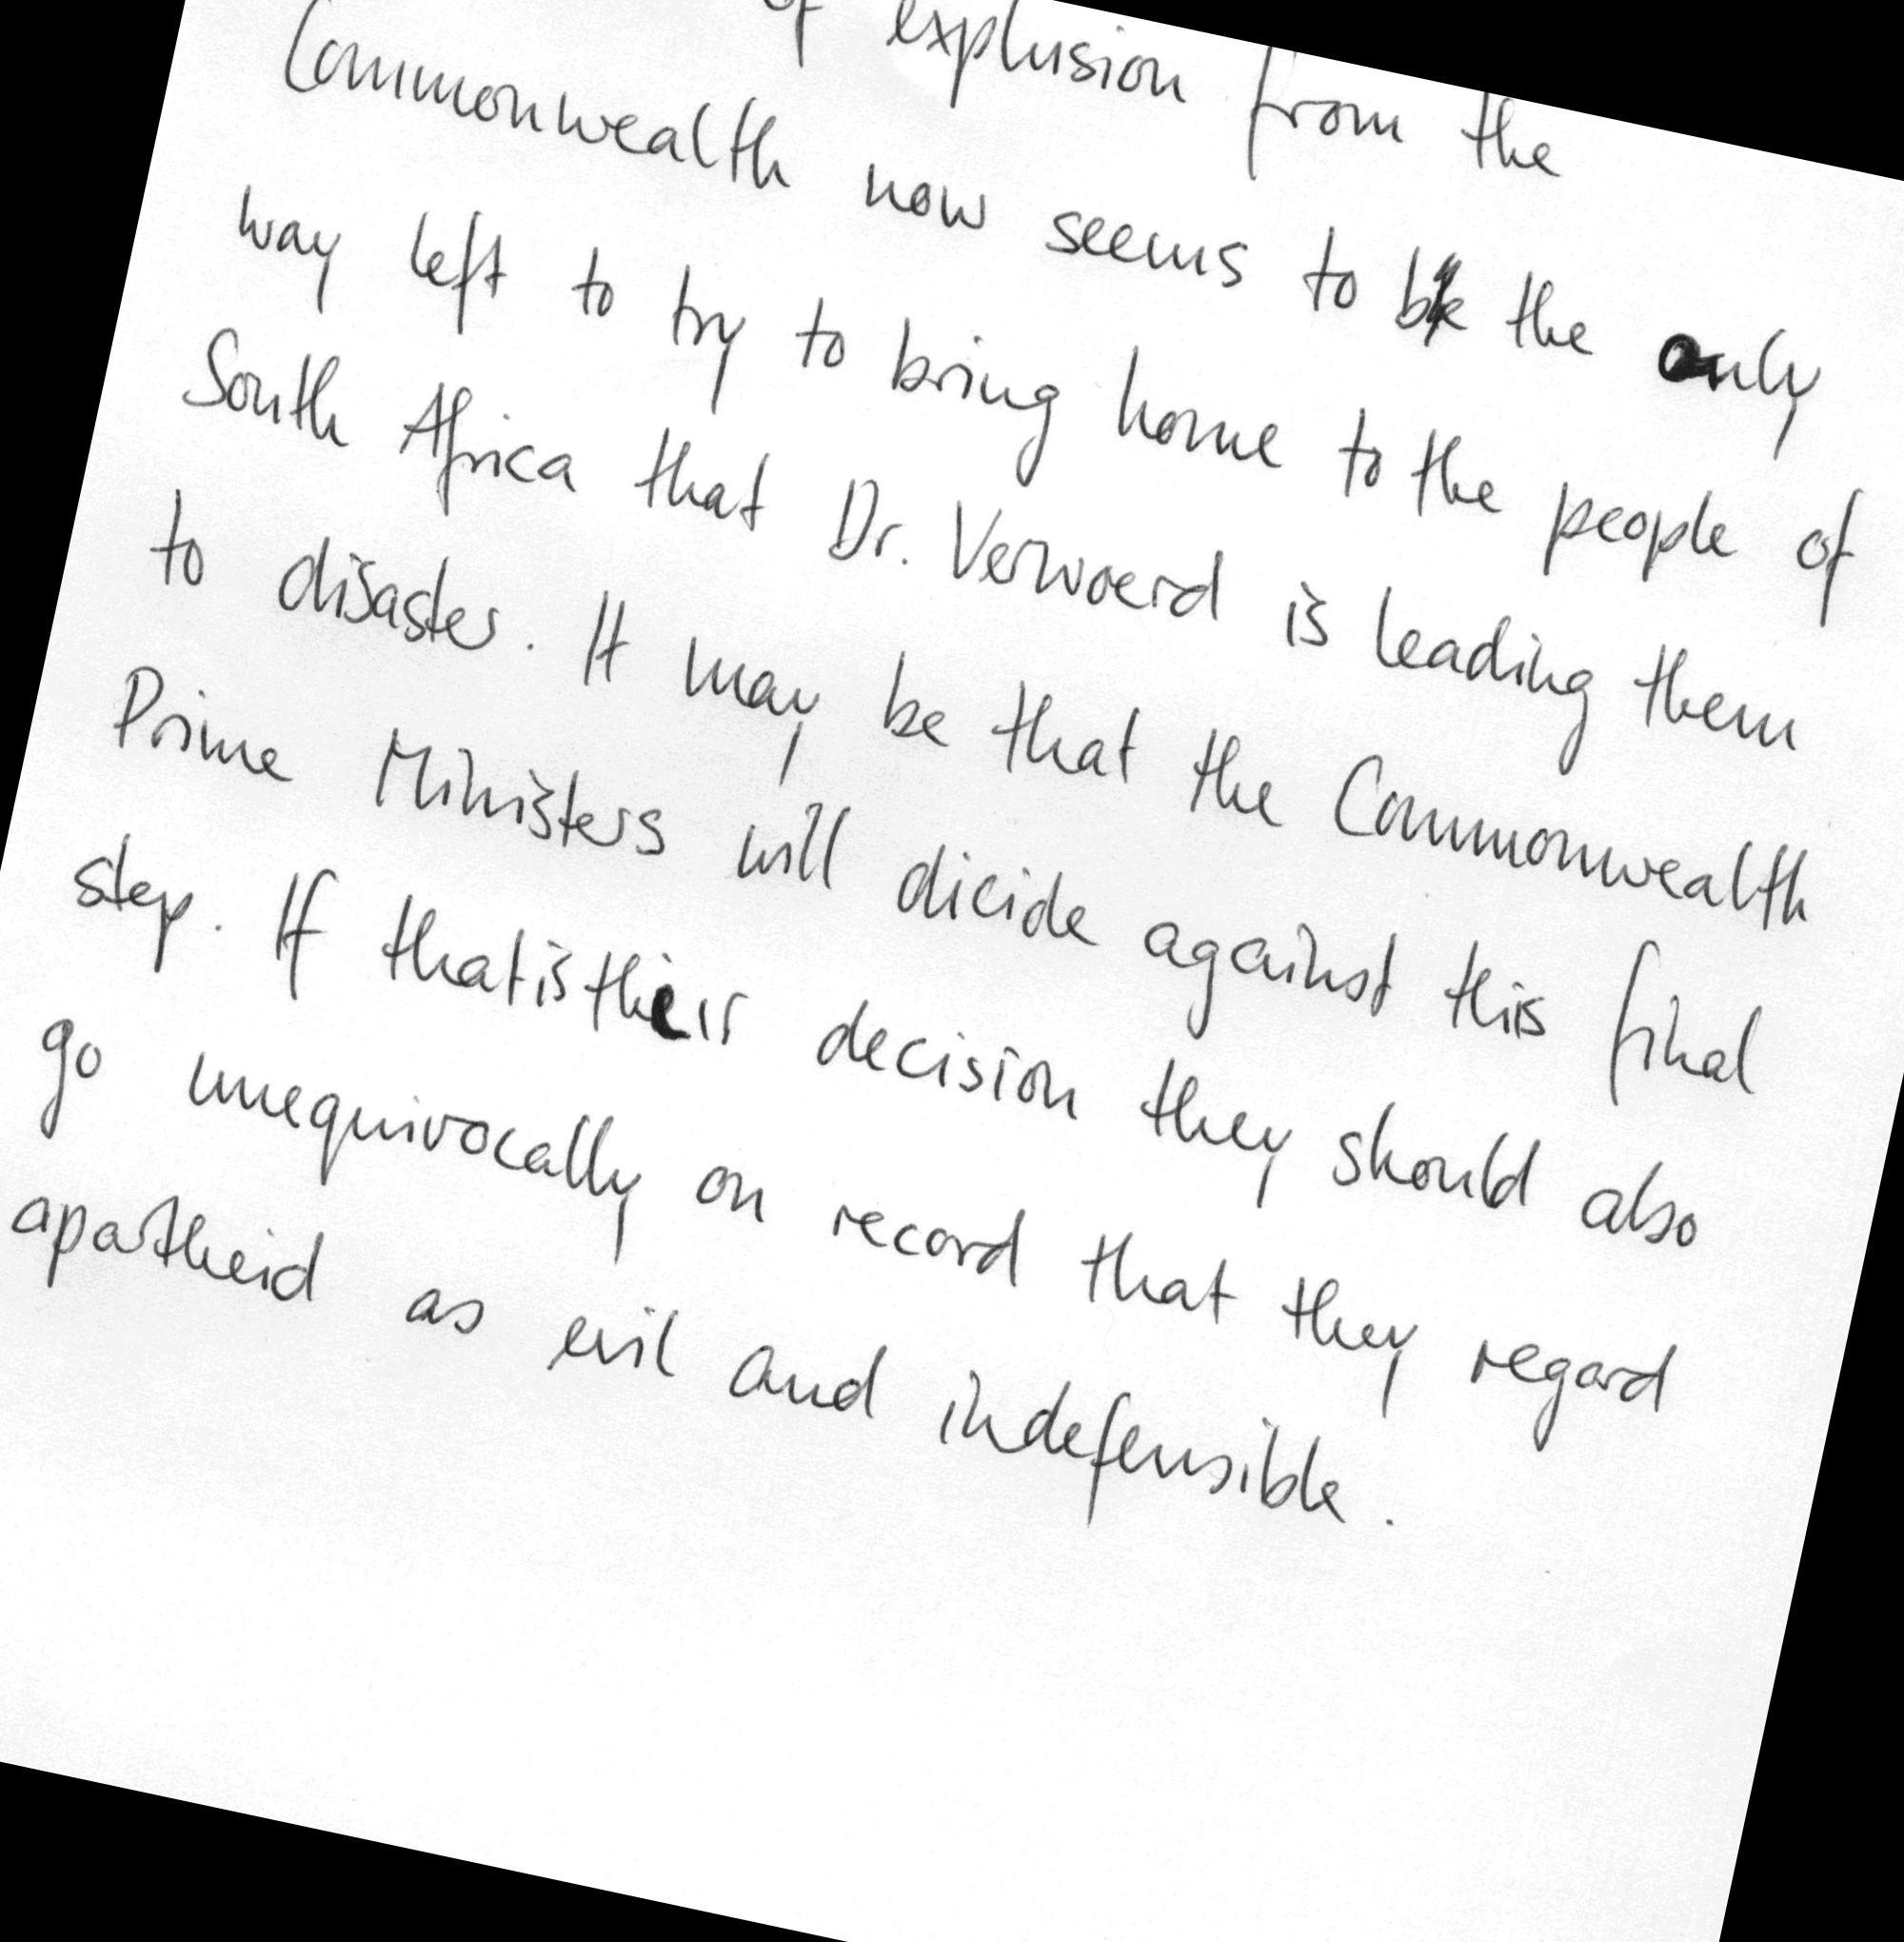 of explusion from the
Commonwealth now seems to be the only
way left to try to bring home to the people of
South Africa that Dr. Verwoerd is leading them
to disaster. It may be that the Commonwealth
Prime Ministers will dicide against this final
step. If that is their decision they should also
go unequivocally on record that they regard
apartheid as evil and indefensible.